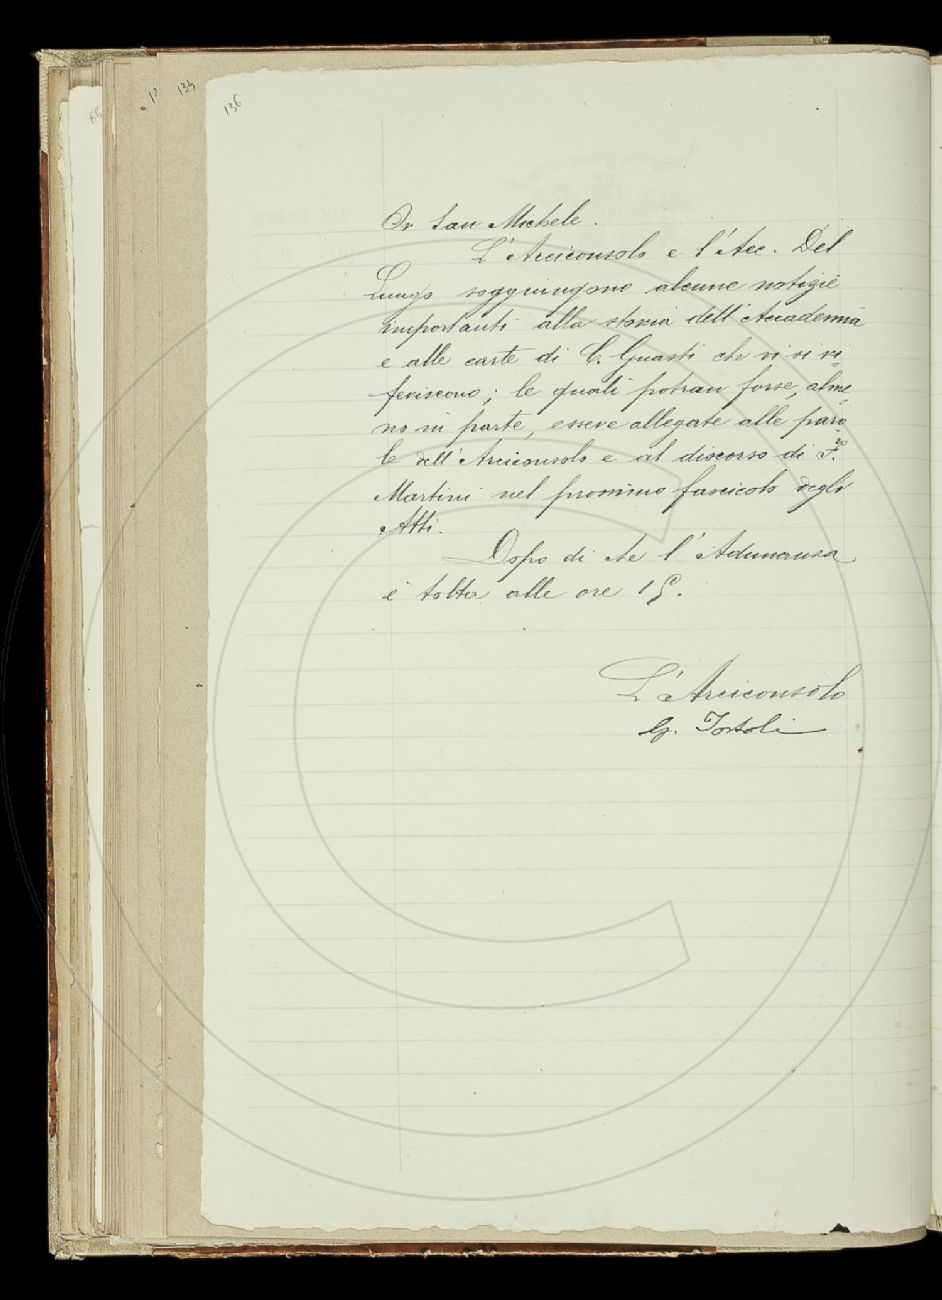 136
134
Or San Michele.
L'Arciconsolo e l'Acc. Del
Lungo soggiungono alcune notizie
importanti alla storia dell'Accademia
e alle carte di C. Guasti che vi si ri=
feriscono; le quali potran forse, alme=
no in parte, essere allegate alle paro
le dell'Arciconsolo e al discorso di F.
Martini nel prossimo fascicolo degli
Atti.
Dopo di che l'Adunanza
è tolta alle ore 15.
L'Arciconsolo
G. Tortoli